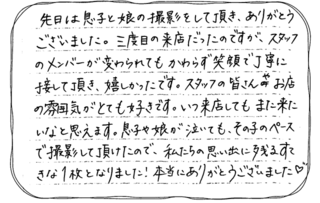 先日は息子と娘の撮影をして頂き、ありがとう
ございました。三度目の来店だったのですが、スタッフ
のメンバーが変わられても かわらず笑顔で丁寧に
接して頂き、嬉しかったです。スタッフの皆さんやお店
の雰囲気がとても好きです。いつ来店しても また来た
いなと思えます。息子や娘が泣いても、その子のペース
で撮影して頂けたので、私たちの思い出に残るすて
きな1枚となりました!本当にありがとうございました♡